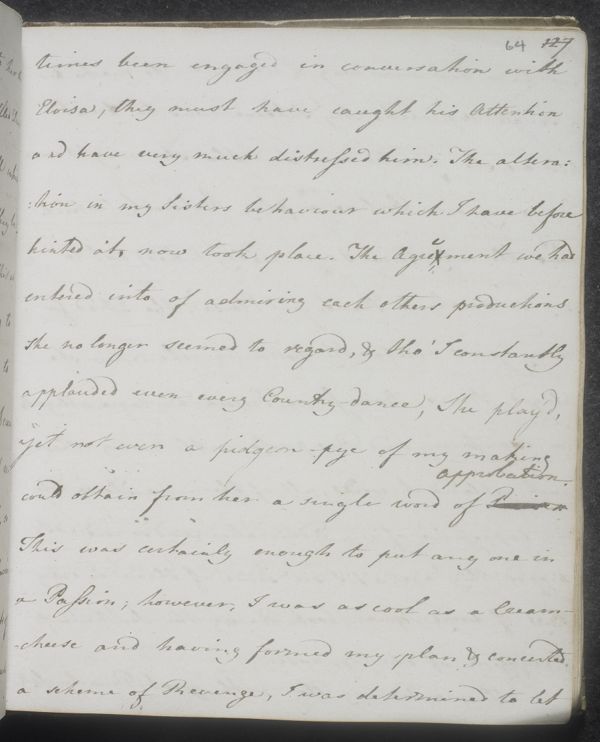 64 127
times been engaged in conversation with
Eloisa, they must have caught his Attention
and have very much distressed him. The altera:
:tion in my Sisters behaviour which I have before
hinted at, now took place. The Agreement we had
entered into of admiring each others productions
she no longer seemed to regard, & tho' I constantly
applauded even every Country-dance, She play'd,
yet not even a pidgeon-pye of my making
approbation.
could obtain from her a single word of Praise.
This was certainly enough to put any one in
a Passion; however, I was as cool as a Cream-
-cheese and having formed my plan & concerted
a scheme of Revenge, I was determined to let